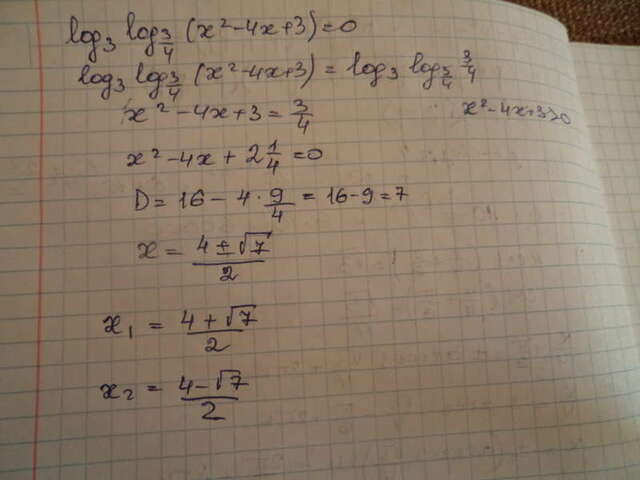 log₃ log_{3/4} (x²-4x+3)=0
log₃ log_{3/4} (x²-4x+3) = log₃ log_{3/4} 3/4
x² - 4x+3 = 3/4 x²-4x+3>0
x² - 4x + 2 1/4 = 0
D = 16 - 4 · 9/4 = 16-9=7
x = (4 ± √7)/2
x₁ = (4+√7)/2
x₂ = (4-√7)/2